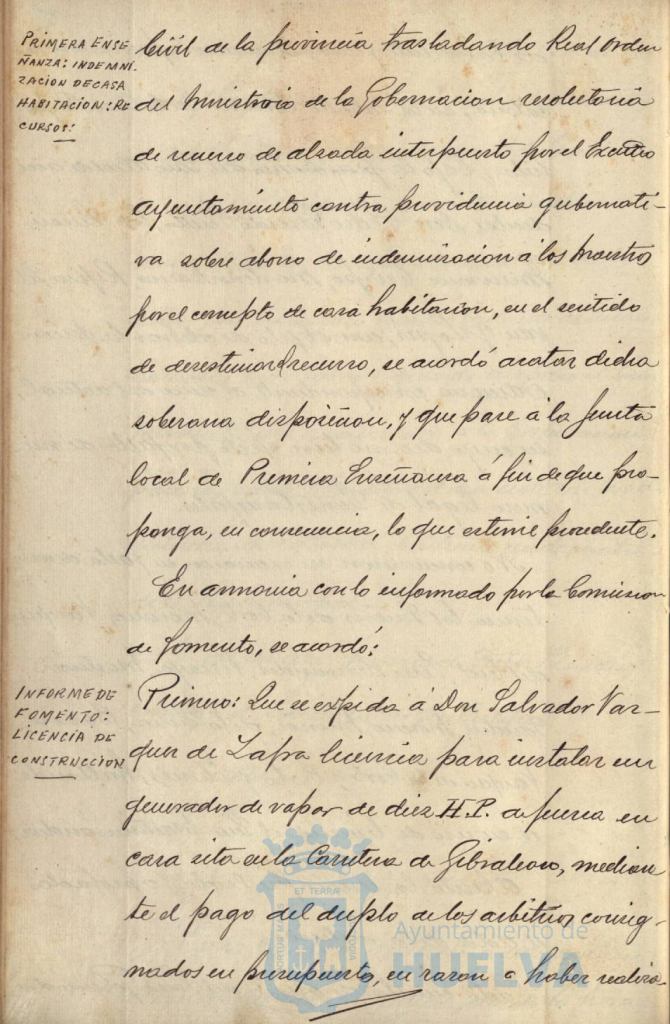 PRIMERA ENSE
ÑANZA: INDEMNI-
ZACION DE CASA
HABITACION: RE
CURSOS:
Civil de la provincia trasladando Real orden
del Ministerio de la Gobernacion resolutoria
de recurso de alzada interpuesto por el Excmo
Ayuntamiento contra providencia gubernati-
va sobre abono de indemnizacion á los maestros
por el concepto de casa habitacion, en el sentido
de desestimar el recurso, se acordó acatar dicha
soberana disposicion, y que pase á la Junta
local de Primera Enseñanza á fin de que pro-
ponga, en consecuencia, lo que estime procedente.
En armonia con lo informado por la Comision
de fomento, se acordó:
INFORME DE
FOMENTO:
LICENCIA DE
CONSTRUCCION
Primero: Que se expida á Don Salvador Vaz-
quez de Zafra licencia para instalar un
generador de vapor de diez H.P. de fuerza en
casa sita en la Carretera de Gibraleon, median-
te el pago del duplo de los arbitrios consig-
nados en presupuesto, en razon a haber realiza-
ET TERRAE
PORTUM MARIS
CUSTODIA
Ayuntamiento de
HUELVA